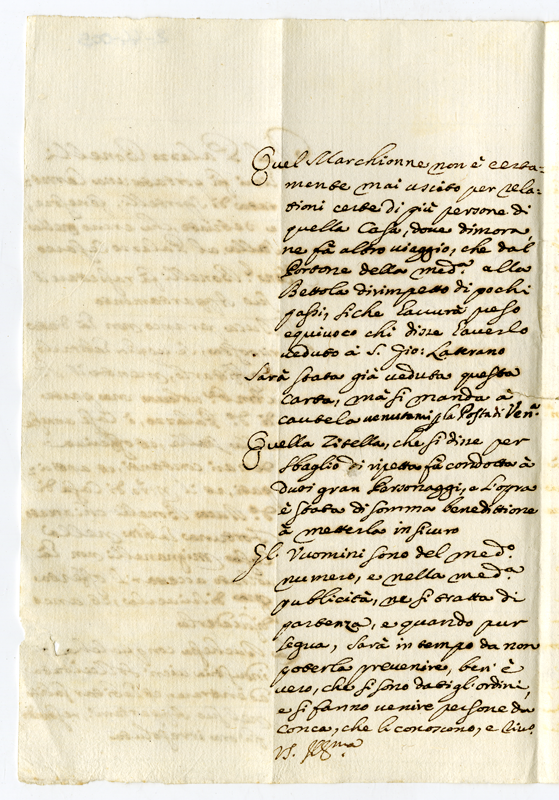 Quel Marchionne non è certa=
mente mai uscito per rela=
tioni certe di più persone di
quella Casa, dove dimora,
ne fà altro viaggio, che dal
Portone della med.a alla
Bettola dirimpetto di pochi
passi, siche havurà preso
equivoco chi disse haverlo
veduto à S. Gio: Latrano
Sarà stata già veduta questa
Carta, mà si manda à
cautela venutami p la Posta di Ven.a
Quella Zitella, che si disse per
sbaglio di ripetta fù condotta à
duoi gran Personaggi, e l'opra
è stata di somma benedittione
à metterla in sicuro
Gl. Uuomini sono del med.o
numero, e nella med.a
publicità, ne si tratta di
partenza, e quando pur
segua, sarà in tempo da non
poterla prevenire, ben' è
vero, che si sono dati gl'ordini,
e si fanno venire persone da
Conca, che li conoscono, e
V.S. Ill.ma